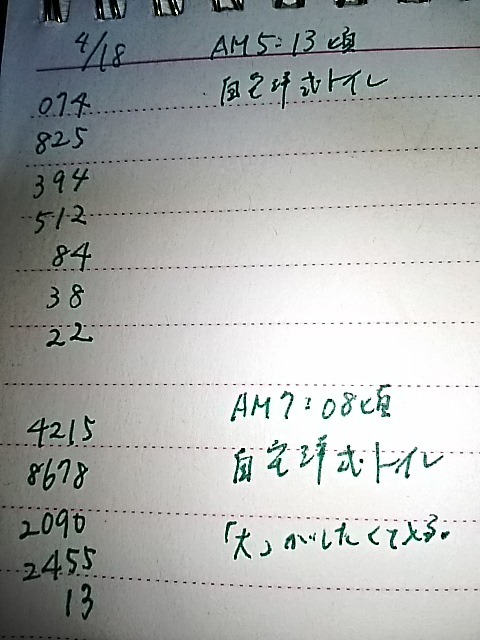 4/18 AM5:13頃
自宅洋式トイレ
074
825
394
512
84
38
22
AM7:08頃
4215
自宅洋式トイレ
8678
2090
「大」がしたくて入る。
2455
13